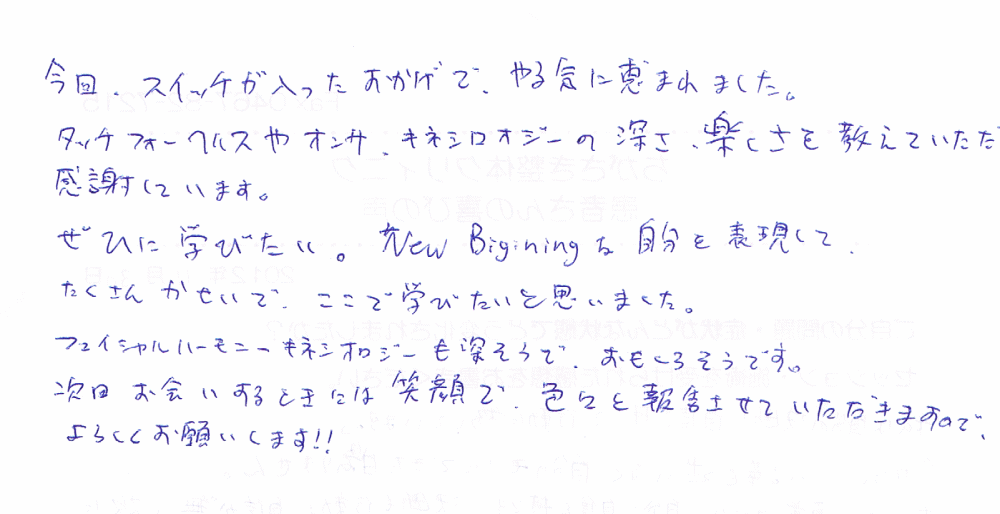 今回、スイッチが入ったおかげで、やる気に恵まれました。
タッチフォーヘルスやオンサ、キネシロオジーの深さ、楽しさを教えていただ
感謝しています。
ぜひに学びたい。New Bigining な自分を表現して、
たくさんかせいで、ここで学びたいと思いました。
フェイシャルハーモニーキネシオロジーも深そうで、おもしろそうです。
次回お会いするときには笑顔で、色々と報告させていただきますので、
よろしくお願いします!!